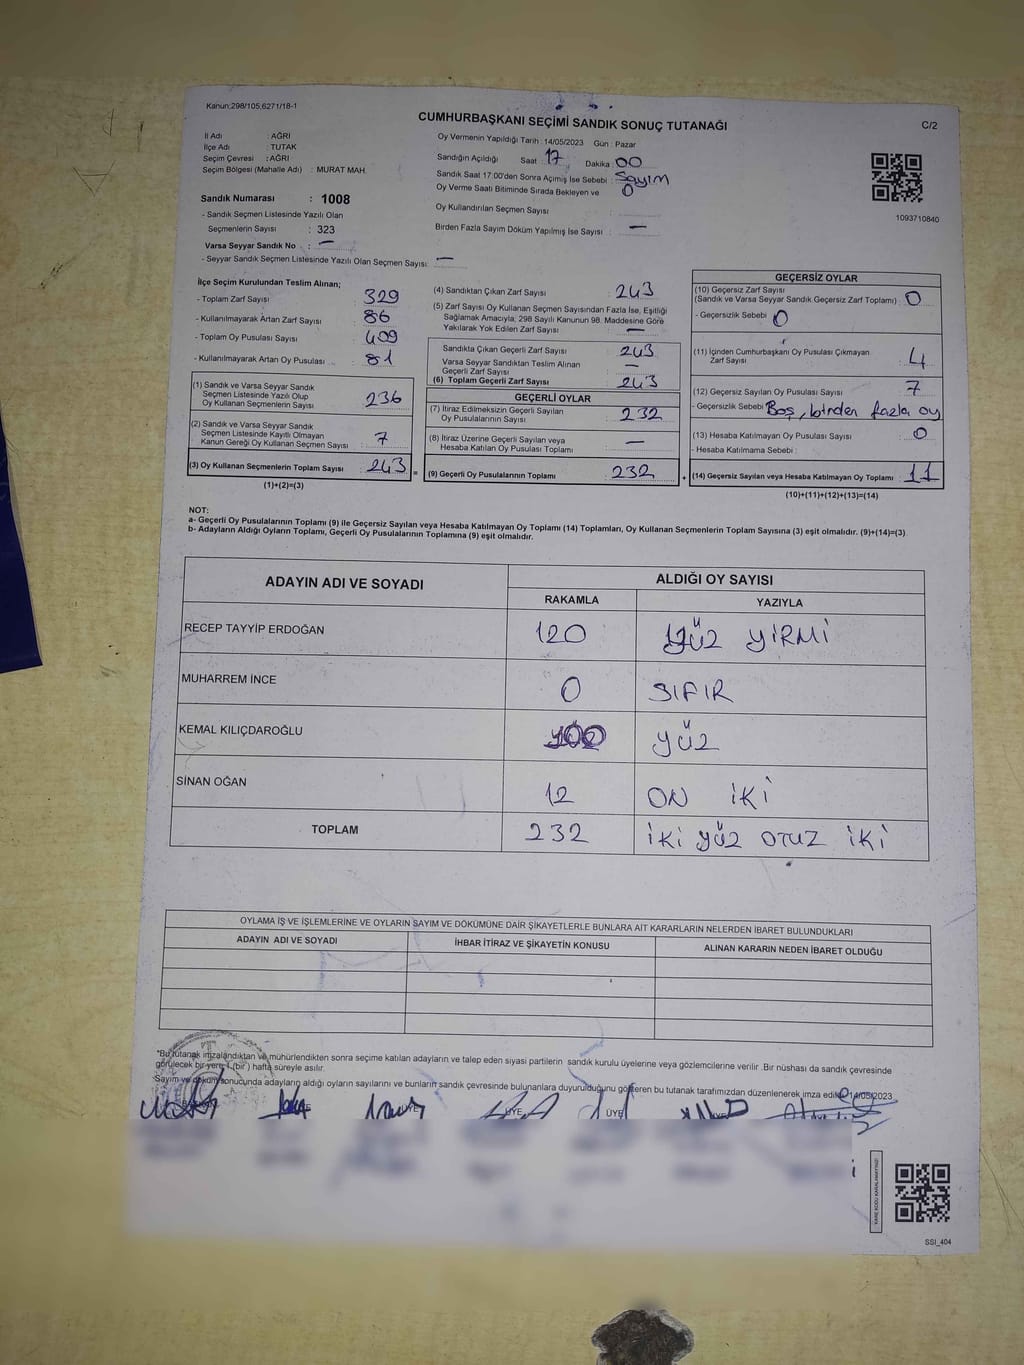 Kanun;298/105,6271/18-1
CUMHURBAŞKANI SEÇİMİ SANDIK SONUÇ TUTANAĞI
C/2
İl Adı : AĞRI
İlçe Adı : TUTAK
Seçim Çevresi : AĞRI
Seçim Bölgesi (Mahalle Adı) : MURAT MAH.
Sandık Numarası : 1008
- Sandık Seçmen Listesinde Yazılı Olan
Seçmenlerin Sayısı : 323
Varsa Seyyar Sandık No : —
- Seyyar Sandık Seçmen Listesinde Yazılı Olan Seçmen Sayısı: —
Oy Vermenin Yapıldığı Tarih : 14/05/2023 Gün : Pazar
Sandığın Açıldığı Saat : 17 Dakika : 00
Sandık Saat 17:00'den Sonra Açımış İse Sebebi : Sayım
Oy Verme Saati Bitiminde Sırada Bekleyen ve 0
Oy Kullandırılan Seçmen Sayısı :
Birden Fazla Sayım Döküm Yapılmış İse Sayısı : —
1093710840
İlçe Seçim Kurulundan Teslim Alınan;
- Toplam Zarf Sayısı : 329
- Kullanılmayarak Artan Zarf Sayısı : 86
- Toplam Oy Pusulası Sayısı : 409
- Kullanılmayarak Artan Oy Pusulası : 81
(1) Sandık ve Varsa Seyyar Sandık
Seçmen Listesinde Yazılı Olup
Oy Kullanan Seçmenlerin Sayısı : 236
(2) Sandık ve Varsa Seyyar Sandık
Seçmen Listesinde Kayıtlı Olmayan
Kanun Gereği Oy Kullanan Seçmen Sayısı : 7
(3) Oy Kullanan Seçmenlerin Toplam Sayısı : 243 =
(1)+(2)=(3)
(4) Sandıktan Çıkan Zarf Sayısı : 243
(5) Zarf Sayısı Oy Kullanan Seçmen Sayısından Fazla İse, Eşitliği
Sağlamak Amacıyla; 298 Sayılı Kanunun 98. Maddesine Göre
Yakılarak Yok Edilen Zarf Sayısı : —
Sandıkta Çıkan Geçerli Zarf Sayısı : 243
Varsa Seyyar Sandıktan Teslim Alınan
Geçerli Zarf Sayısı : —
(6) Toplam Geçerli Zarf Sayısı : 243
GEÇERLİ OYLAR
(7) İtiraz Edilmeksizin Geçerli Sayılan
Oy Pusulalarının Sayısı : 232
(8) İtiraz Üzerine Geçerli Sayılan veya
Hesaba Katılan Oy Pusulası Toplamı : —
(9) Geçerli Oy Pusulalarının Toplamı : 232 +
GEÇERSİZ OYLAR
(10) Geçersiz Zarf Sayısı
(Sandık ve Varsa Seyyar Sandık Geçersiz Zarf Toplamı) : 0
- Geçersizlik Sebebi : 0
(11) İçinden Cumhurbaşkanı Oy Pusulası Çıkmayan
Zarf Sayısı : 4
(12) Geçersiz Sayılan Oy Pusulası Sayısı : 7
- Geçersizlik Sebebi : Boş, birden fazla oy
(13) Hesaba Katılmayan Oy Pusulası Sayısı : 0
- Hesaba Katılmama Sebebi :
(14) Geçersiz Sayılan veya Hesaba Katılmayan Oy Toplamı : 11
(10)+(11)+(12)+(13)=(14)
NOT:
a- Geçerli Oy Pusulalarının Toplamı (9) ile Geçersiz Sayılan veya Hesaba Katılmayan Oy Toplamı (14) Toplamları, Oy Kullanan Seçmenlerin Toplam Sayısına (3) eşit olmalıdır. (9)+(14)=(3)
b- Adayların Aldığı Oyların Toplamı, Geçerli Oy Pusulalarının Toplamına (9) eşit olmalıdır.
ADAYIN ADI VE SOYADI ALDIĞI OY SAYISI
RAKAMLA YAZIYLA
RECEP TAYYİP ERDOĞAN 120 YÜZ YİRMİ
MUHARREM İNCE 0 SIFIR
KEMAL KILIÇDAROĞLU 100 YÜZ
SİNAN OĞAN 12 ON İKİ
TOPLAM 232 İKİ YÜZ OTUZ İKİ
OYLAMA İŞ VE İŞLEMLERİNE VE OYLARIN SAYIM VE DÖKÜMÜNE DAİR ŞİKAYETLERLE BUNLARA AİT KARARLARIN NELERDEN İBARET BULUNDUKLARI
ADAYIN ADI VE SOYADI İHBAR İTİRAZ VE ŞİKAYETİN KONUSU ALINAN KARARIN NEDEN İBARET OLDUĞU
"Bu tutanak imzalandıktan ve mühürlendikten sonra seçime katılan adayların ve talep eden siyasi partilerin sandık kurulu üyelerine veya gözlemcilerine verilir .Bir nüshası da sandık çevresinde
görülecek bir yere 1 (bir ) hafta süreyle asılır.
Sayım ve döküm sonucunda adayların aldığı oyların sayılarını ve bunların sandık çevresinde bulunanlara duyurulduğunu gösteren bu tutanak tarafımızdan düzenlenerek imza edildi. 14/05/2023
ÜYE ÜYE ÜYE
KARE KODU KARALAMAYINIZ!
SSİ_404